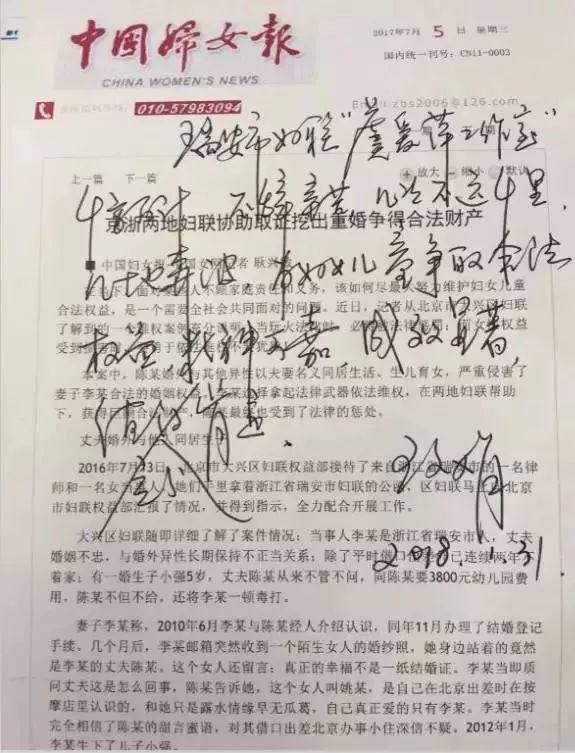 中国婦女報
CHINA WOMEN'S NEWS
2017年7月 5 日 星期三
国内统一刊号:CN11-0003
010-57983094
Email:zbs2006@126.com
瑞安市妇联"虞爱萍工作室"
上一篇 下一篇
放大 缩小 默认
千言万计 不辞辛苦 几次不远千里
京浙两地妇联协助取证挖出重婚争得合法财产
中国妇女报 记者 耿兴敏
为妇女儿童争取合法
合法权益,是一个需要全社会共同面对的问题。近日,记者从北京市大兴区妇联
权益 精神可嘉 成效显著
本案中,陈某婚外与其他异性以夫妻名义同居生活、生儿育女,严重侵害了
妻子李某合法的婚姻权益。李某选择拿起法律武器依法维权,在两地妇联帮助
值得肯定
丈夫婚外与他人同居生子
2016年7月13日,北京市大兴区妇联权益部接待了来自浙江省瑞安市的一名律
师和一名女当事人,她们手里拿着浙江省瑞安市妇联的公函,区妇联马上向北京
市妇联权益部汇报了情况,并得到指示,全力配合开展工作。
2018.1.31
大兴区妇联随即详细了解了案件情况:当事人李某是浙江省瑞安市人,丈夫
婚姻不忠,与婚外异性长期保持不正当关系;除了平时借口出差外已连续两年不
着家;有一婚生子小强5岁,丈夫陈某从来不管不问,向陈某要3800元幼儿园费
用,陈某不但不给,还将李某一顿毒打。
妻子李某称,2010年6月李某与陈某经人介绍认识,同年11月办理了结婚登记
手续。几个月后,李某邮箱突然收到一个陌生女人的婚纱照,她身边站着的竟然
是李某的丈夫陈某。这个女人还留言:真正的幸福不是一纸结婚证。李某当即质
问丈夫这是怎么回事,陈某告诉她,这个女人叫姚某,是自己在北京出差时在按
摩店里认识的,和她只是露水情缘早无瓜葛,自己真正爱的只有李某。李某当时
完全相信了陈某的甜言蜜语,对其借口出差北京办事小住深信不疑。2012年1月,
李某生下了儿子小强。